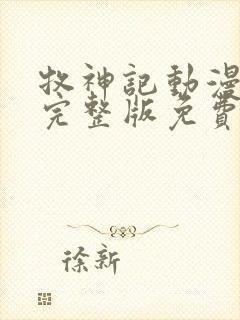 牧神記動漫
完整版免費
徐新